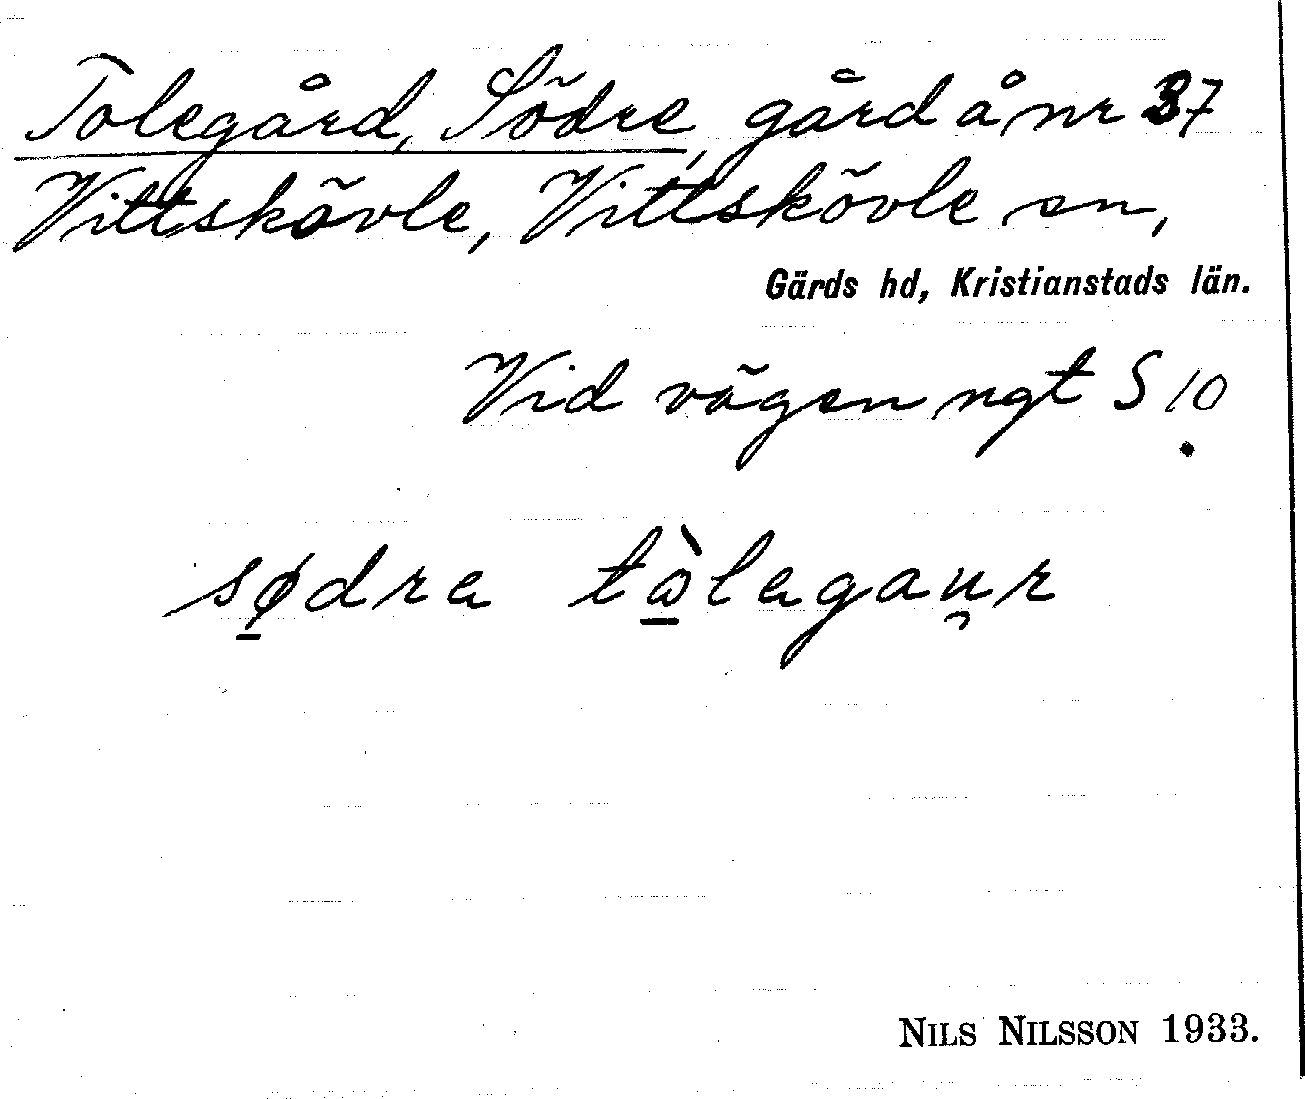 Tolegård, Södre, gård å nr 37
Vittskövle, Vittskövle sn,
Gärds hd, Kristianstads län.
Vid vägen ngt S 10
sødra tòlagaur
NILS NILSSON 1933.